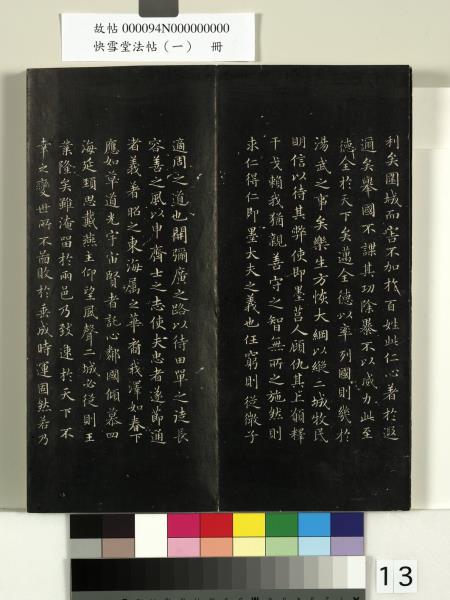 故帖 000094N000000000
快雪堂法帖（一） 冊
利矣圍城而害不加於百姓此仁心著於遐
邇矣舉國不謀其功除暴不以威力此至
德全於天下矣邁全德以率列國則幾於
湯武之事矣樂生方恢大綱以縱二城牧民
明信以待其弊使即墨莒人顧仇其上願釋
干戈賴我猶親善守之智無所之施然則
求仁得仁即墨大夫之義也任窮則從微子
適周之道也開彌廣之路以待田單之徒長
容善之風以申齊士之志使夫忠者遂節通
者義著昭之東海屬之華裔我澤如春下
應如草道光宇宙賢者託心鄰國傾慕四
海延頸思戴燕主仰望風聲二城必從則王
業隆矣雖淹留於兩邑乃致速於天下不
幸之變世所不啚敗於垂成時運固然若乃
13